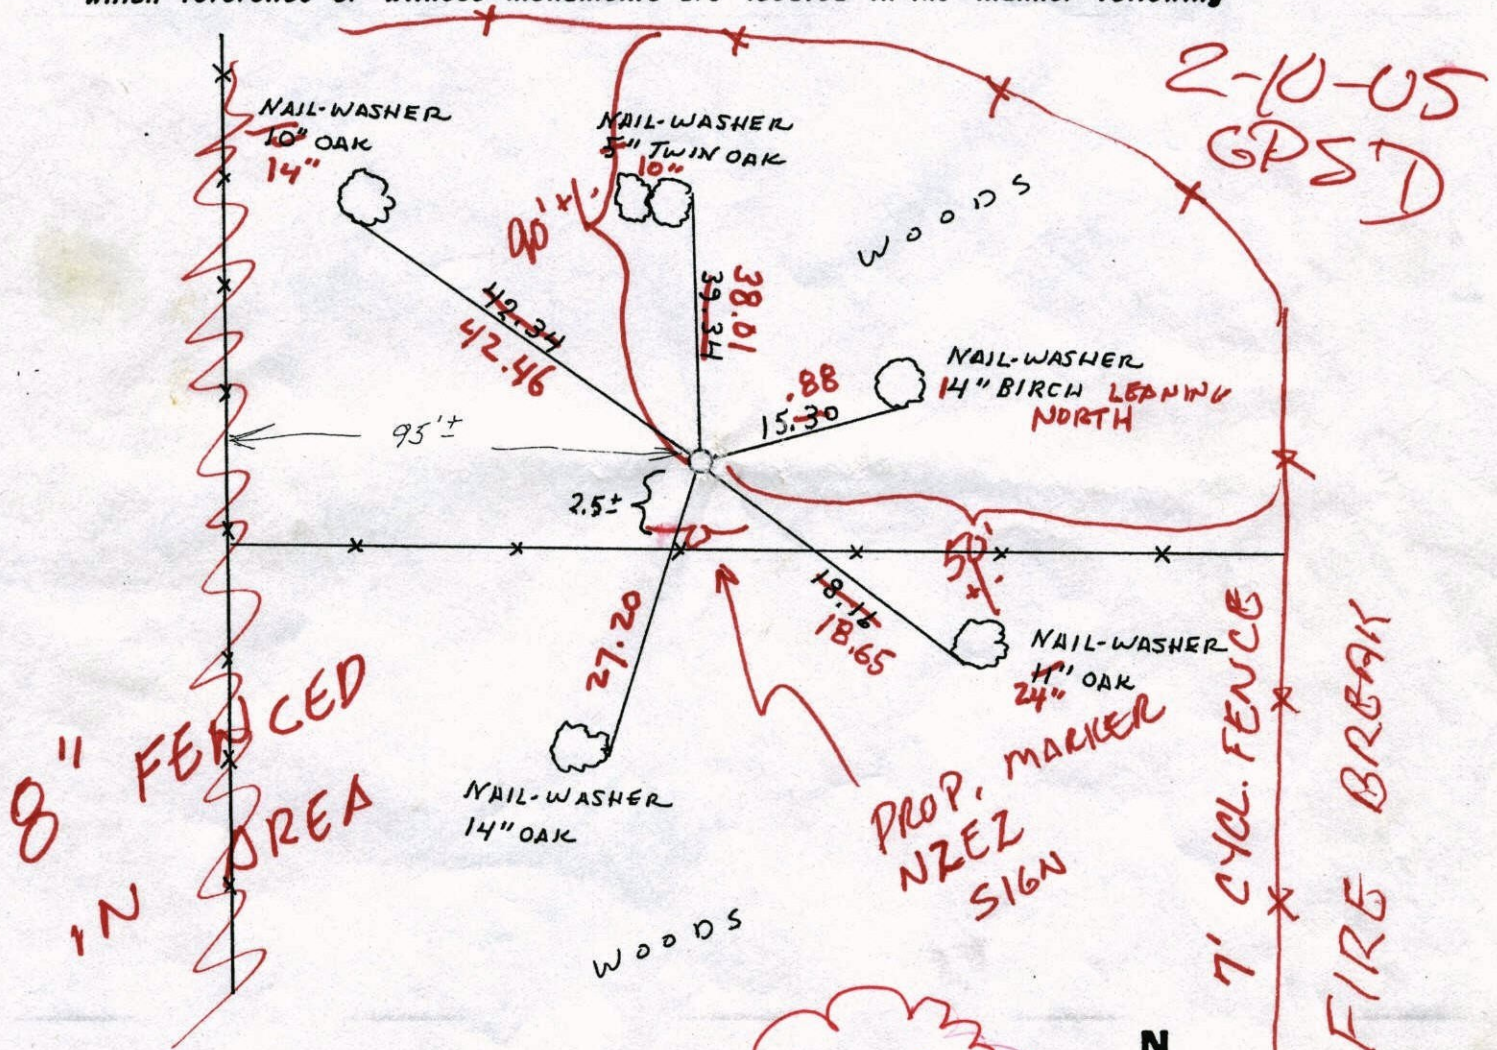 2-10-05
GPS'D
NAIL-WASHER
10" OAK
14"
NAIL-WASHER
5" TWIN OAK
10"
WOODS
90'±
42.34
42.46
39.34
38.01
NAIL-WASHER
14" BIRCH LEANING
NORTH
.88
15.30
95'±
2.5±
50'±
18.16
18.65
27.20
NAIL-WASHER
11" OAK
24"
NAIL-WASHER
14" OAK
8" FENCED
IN AREA
PROP. MARKER
N2E2
SIGN
7' CYCL. FENCE
FIRE BREAK
WOODS
N